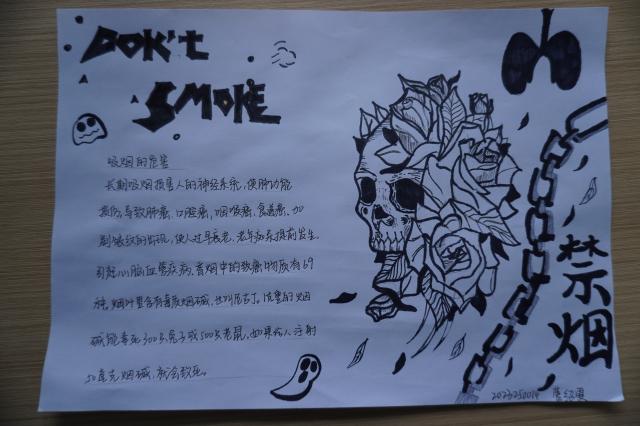 DON't
SMOKE
吸烟的危害
长期吸烟损害人的神经系统,使脑功能
损伤,导致肺癌、口腔癌、咽喉癌、食道癌,加
剧皱纹的出现,使人过早衰老,老年病亦提前发生.
引起心脑血管疾病,香烟中的致癌物质有69
种.烟叶里含有毒质烟碱,也叫尼古丁。
碱能毒死300只兔子或500只老鼠,如果给人注射
50毫克烟碱,就会致死。
禁
烟
2023250014